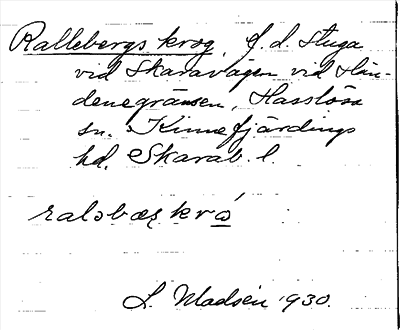 Rallebergs krog, f. d. stuga
vid Skaravägen vid Hän-
denegränsen, Hasslösa
sn. Kinnefjärdings
hd. Skarab. l.
ralsbærkrå
L. Madsén 1930.